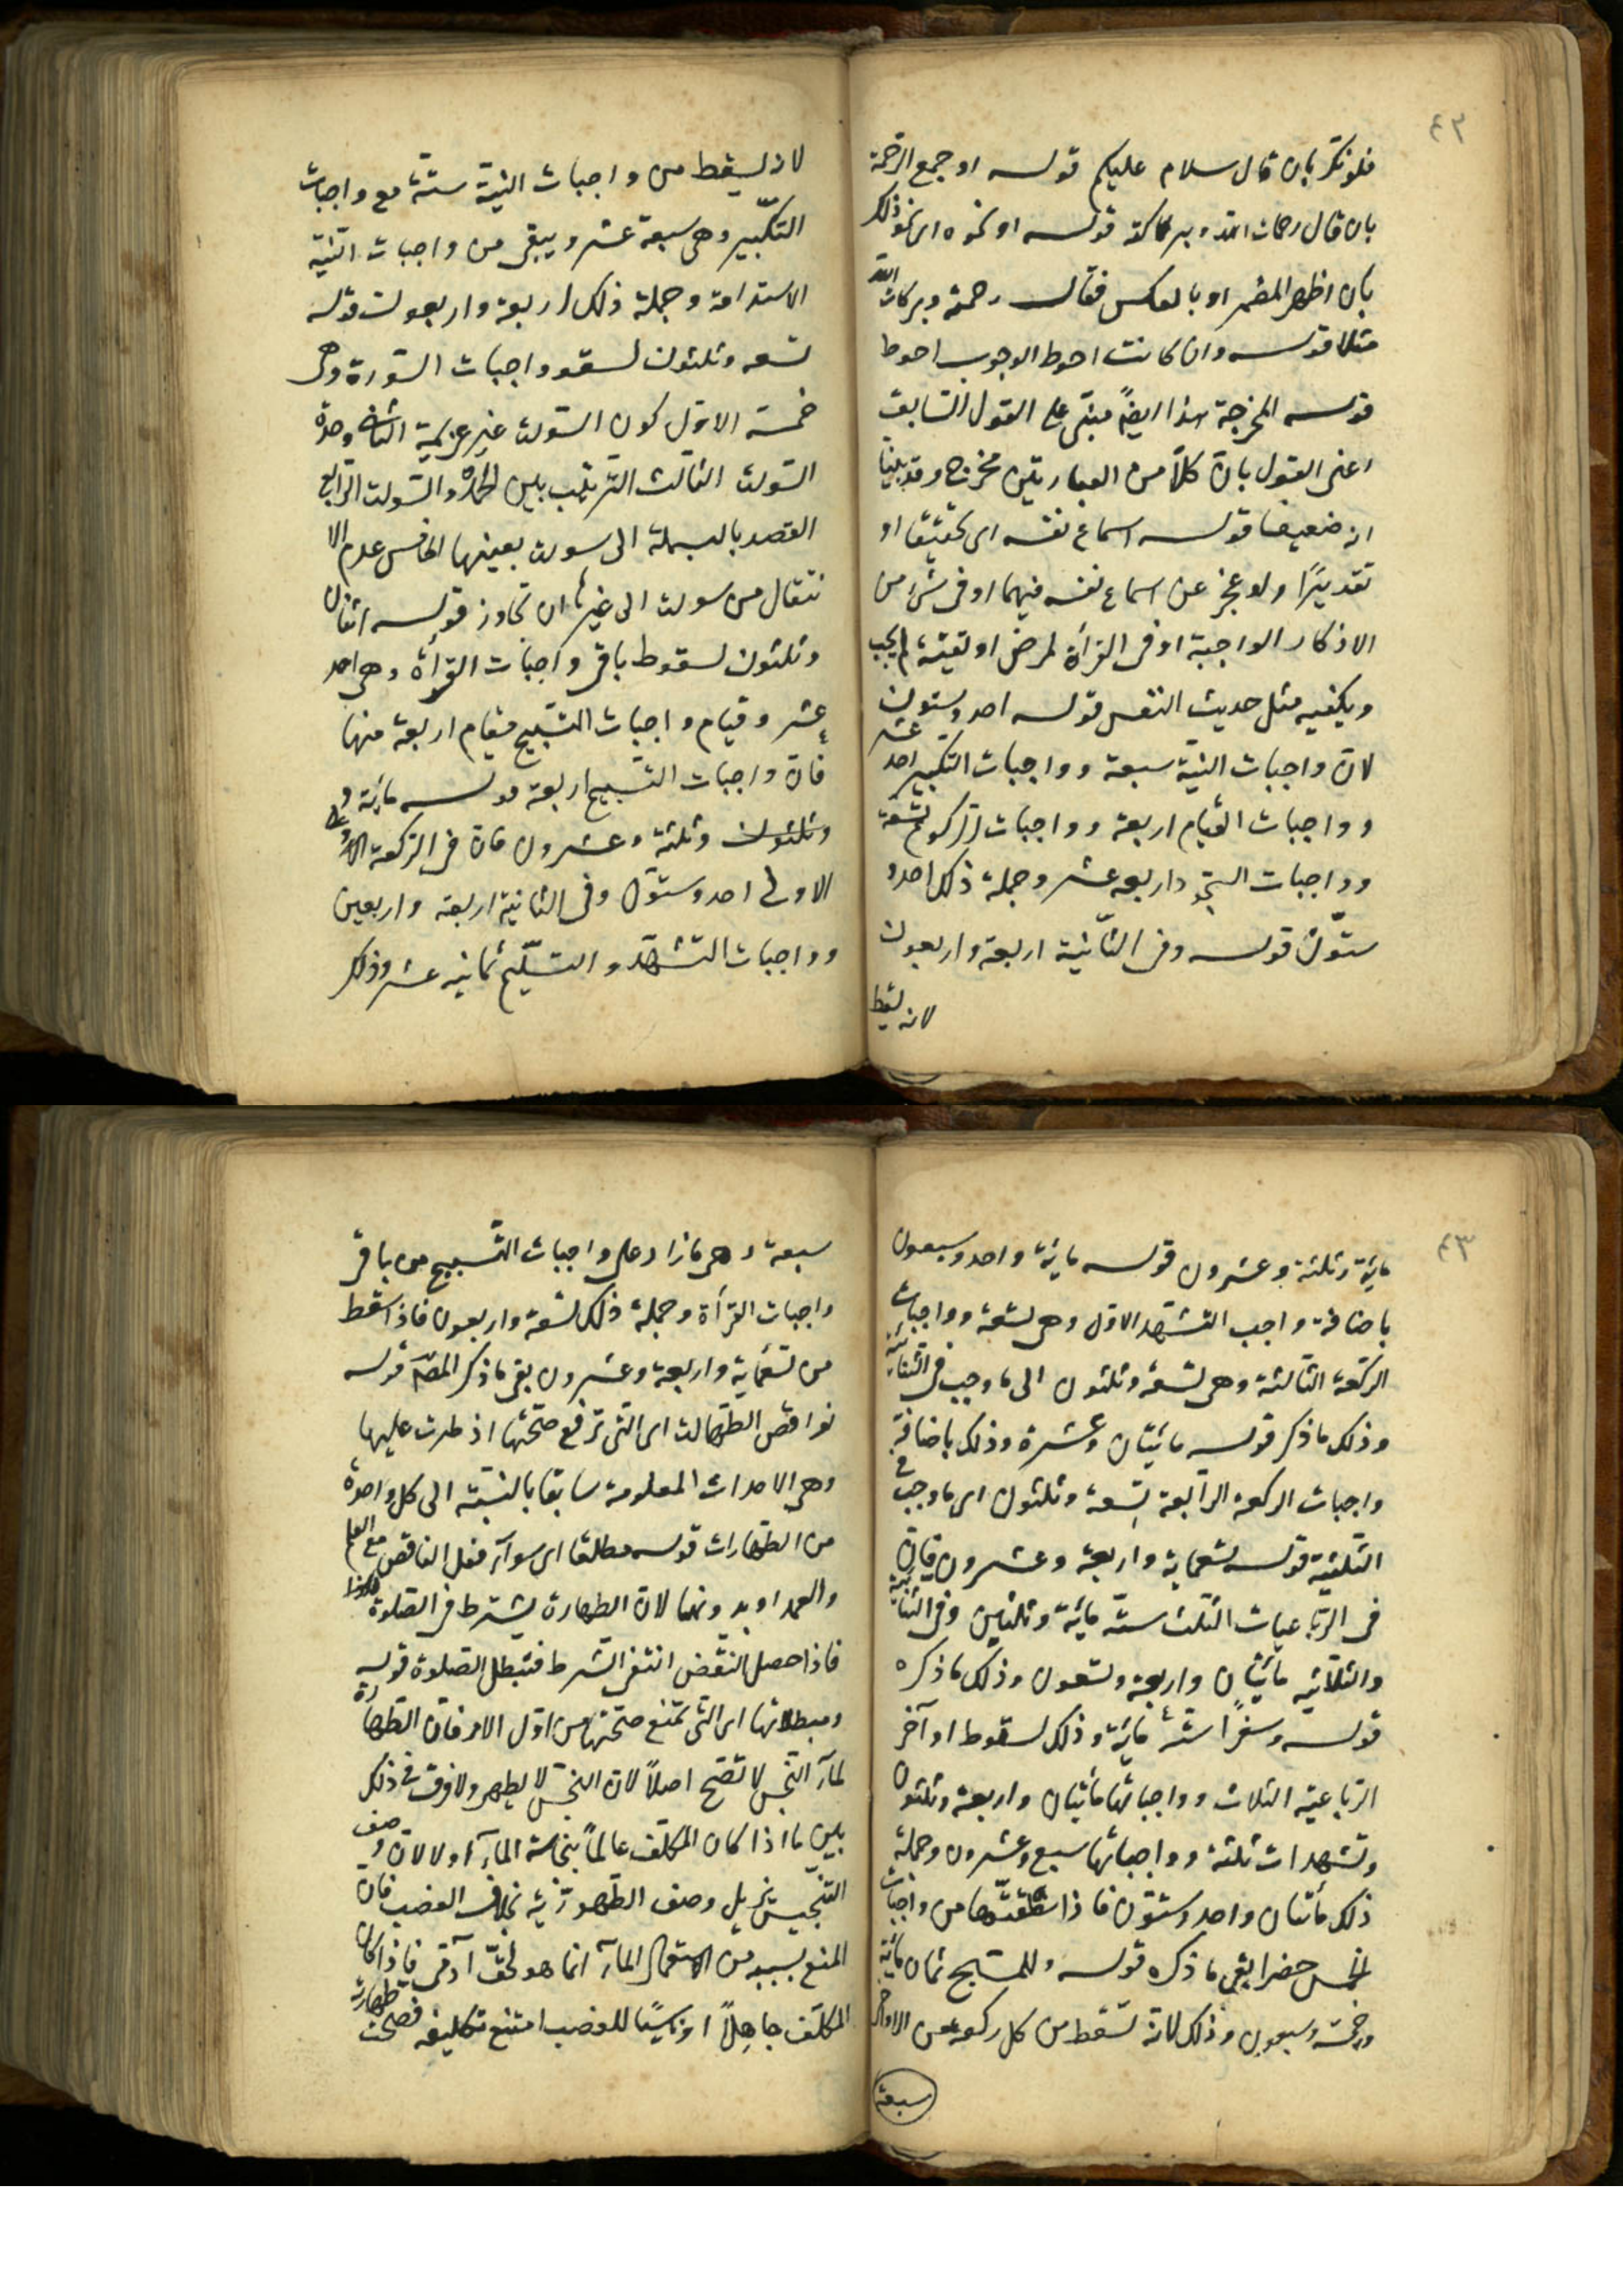 ٤٢
فلو نكر بان قال سلام عليكم قوله او جمع الرحمة
بان قال رحمات الله وبركاته قوله او نحوه اى نحو ذلك
بان اظهر المضمر او بالعكس فقال رحمة وبركات الله
مثلا قوله وان كانت احوط الوجوب احوط
قوله المخرجة هذا ايضًا مبنى على القول السابق
اعنى القول بان كلًا من العبارتين مخرج وقد بينا
انه ضعيف قوله اسماع نفسه اى تحقيقا او
تقديرًا ولو عجز عن اسماع نفسه فيهما او فى شئ من
الاذكار الواجبة او فى القرأة لمرض او تقية لم يجب
ويكفيه مثل حديث النفس قوله احد وستون
لان واجبات النية سبعة وواجبات التكبير احد عشر
وواجبات القيام اربعة وواجبات الركوع تسعة
وواجبات السجود اربعة عشر وجملة ذلك احد و
ستون قوله وفى الثانية اربعة واربعون
لانه يسقط
لانه يسقط من واجبات النية ستة مع واجبات
التكبير وهى سبعة عشر ويبقى من واجبات النية
الاستدامة وجملة ذلك اربعة واربعون قوله
تسعه وثلثون لسقوط واجبات السورة وهى
خمسة الاول كون السورة غير عزيمة الثانى وحدة
السورة الثالث الترتيب بين الحمد والسورة الرابع
القصد بالبسملة الى سورة بعينها الخامس عدم الا
نتقال من سورة الى غيرها ان تجاوز قوله اثنان
وثلثون لسقوط باقى واجبات القرأة وهى احد
عشر وقيام واجبات التسبيح مقام اربعة منها
فان واجبات التسبيح اربعة قوله مائة و
وثلثون وثلثة وعشرون فان فى الركعة
الاولى احد وستون وفى الثانية اربعة واربعين
وواجبات التشهد والتسليم ثمانية عشر وذلك
٤٣
مائة وثلثة وعشرون قوله مائة واحد وسبعون
باضافة واجب التشهد الاول وهى تسعة وواجبات
الركعة الثالثة وهى تسعة وثلثون الى ما وجب فى الثنائية
وذلك ما ذكر قوله مائتان وعشرة وذلك باضافة
واجبات الركعة الرابعة تسعة وثلثون اى ما وجب فى
الثلثية قوله تسعمائة واربعة وعشرون فان
فى الرباعيات الثلث ستة مائة وثلثين وفى الثنائية
والثلاثيه مأتان واربعة وتسعون وذلك ما ذكره
قوله وسفرًا ستة مائة وذلك لسقوط اواخر
الرباعية الثلاث وواجباتها مأتان واربعة وثلثون
وتشهدات ثلثة وواجباتها سبع وعشرون وجملة
ذلك مأتان واحد وستون فاذا سقطتها من واجبات
الخمس حضرا بقى ما ذكره قوله وللمسبح ثمان مائة
وخمسة وسبعون وذلك لانه تسقط من كل ركعة من الاواخر
سبعة
سبعة وهى ما زاد على واجبات التسبيح من باقى
واجبات القرأة وجملة ذلك تسعة واربعون فاذا سقط
من تسعمائة واربعة وعشرون بقى ما ذكر المصـ قوله
نواقض الطهارة اى التى ترفع صحتها اذ طرت عليها
وهى الاحداث المعلومة سابقا بالنسبة الى كل واحدة
من الطهارات قوله مطلقا اى سوآء فعل الناقض مع العلم
والعمد او بدونهما لان الطهارة يشترط فى الصلوة
فاذا حصل النقض انتفى الشرط فتبطل الصلوة قوله
ومبطلاتها اى التى تمنع صحتها من اول الامر فان الطهارة
لمآء النجس لا تصح اصلاً لان النجس لا يطهر ولا فرق فى ذلك
بين ما اذا كان المكلف عالماً بنجاسة المآء او لا لان وصف
التنجيس يزيل وصف الطهورية بخلاف الغصب فان
المنع بسببه من استعمال المآء انما هو لحق آدمى فاذا كان
المكلف جاهلاً او ناسيًا للغصب امتنع تكليفه فصحت طهارته